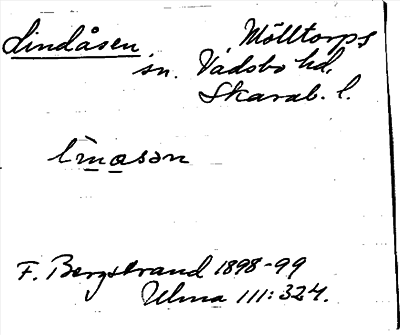 Lindåsen Mölltorps
sn. Vadsbo hd.
Skarab. l.
li̇̀nasən
F. Bergstrand 1898-99
Ulma 111:324.